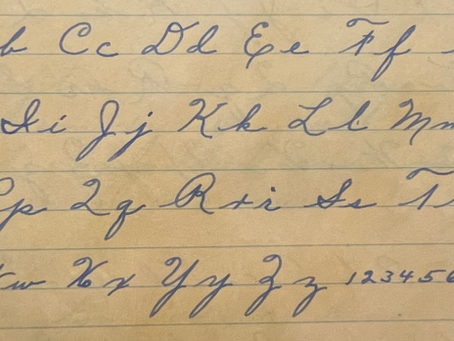 b Cc Dd Ee Ff
Ii Jj Kk Ll Mm
Pp Qq Rr r Ss T
w Xx Yy Zz 123456